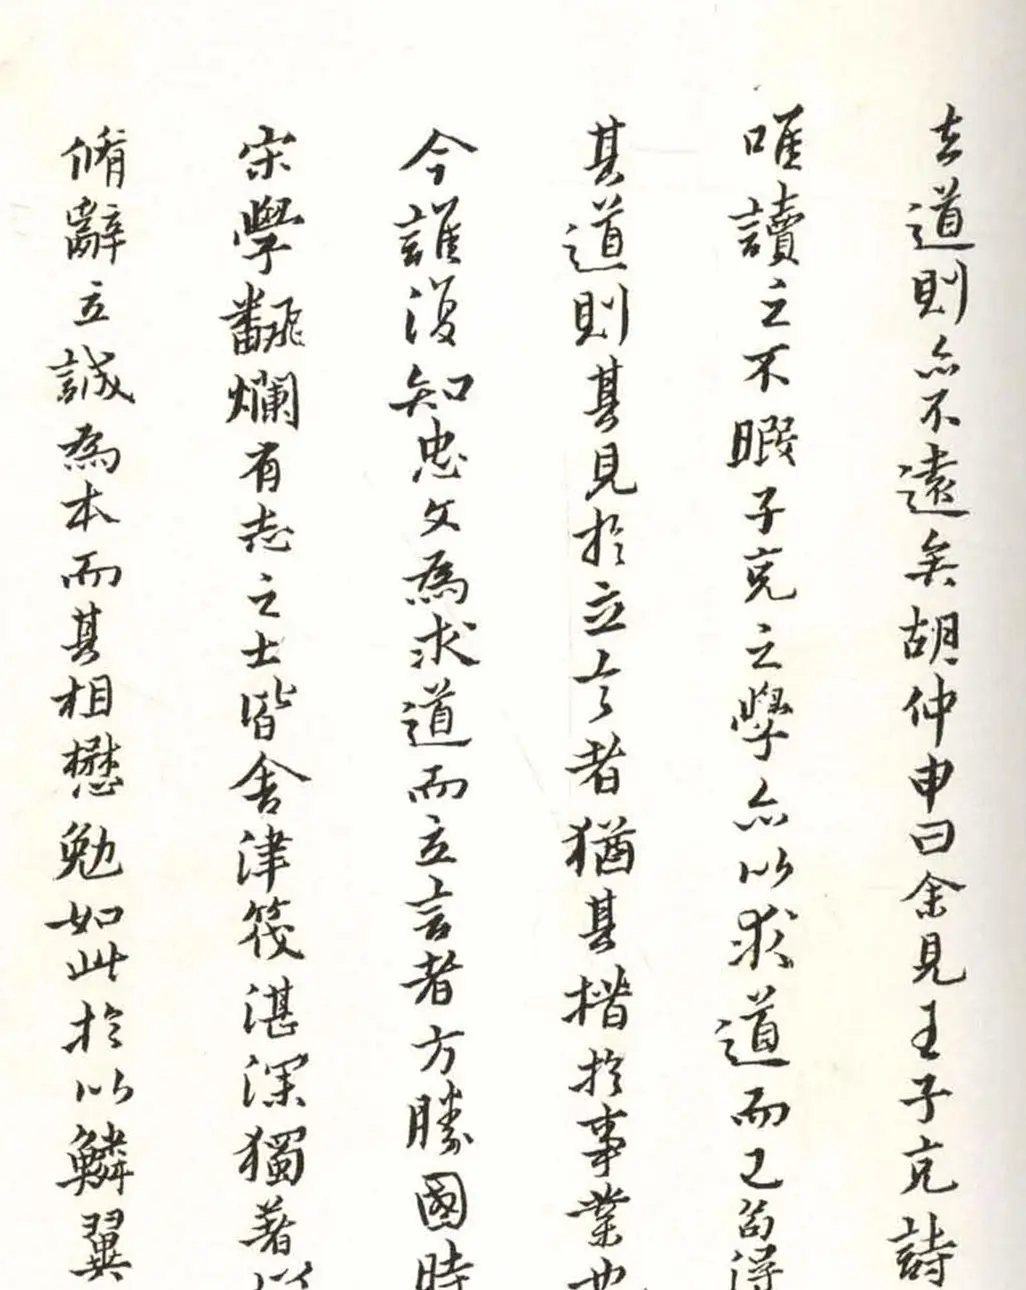 去道則亦不遠矣胡仲申曰余見王子充詩
唯讀之不暇子充之學亦以求道而已苟得
其道則其見於立言者猶其措於事業也
今誰復知忠文為求道而立言者方勝國時
宋學翻爛有志之士皆舍津筏湛深獨著以
脩辭立誠為本而其相懋勉如此於以鱗翼